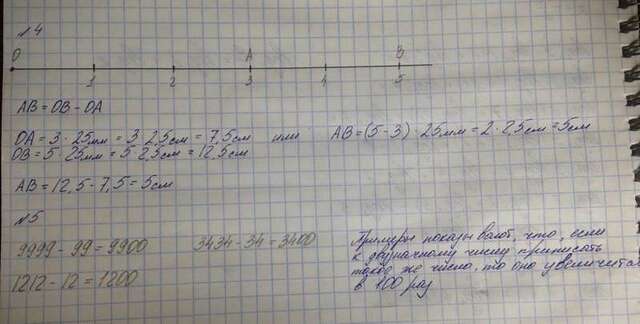 №4
O A B
1 2 3 4 5
AB = OB - OA
OA = 3 · 25мм = 3 · 2,5см = 7,5см или AB = (5-3) · 25мм = 2 · 2,5см = 5см
OB = 5 · 25мм = 5 · 2,5см = 12,5см
AB = 12,5 - 7,5 = 5см
№5
9999 - 99 = 9900 3434 - 34 = 3400
1212 - 12 = 1200
Примеры показывают, что, если
к двузначному числу приписать
такое же число, то оно увеличится
в 100 раз